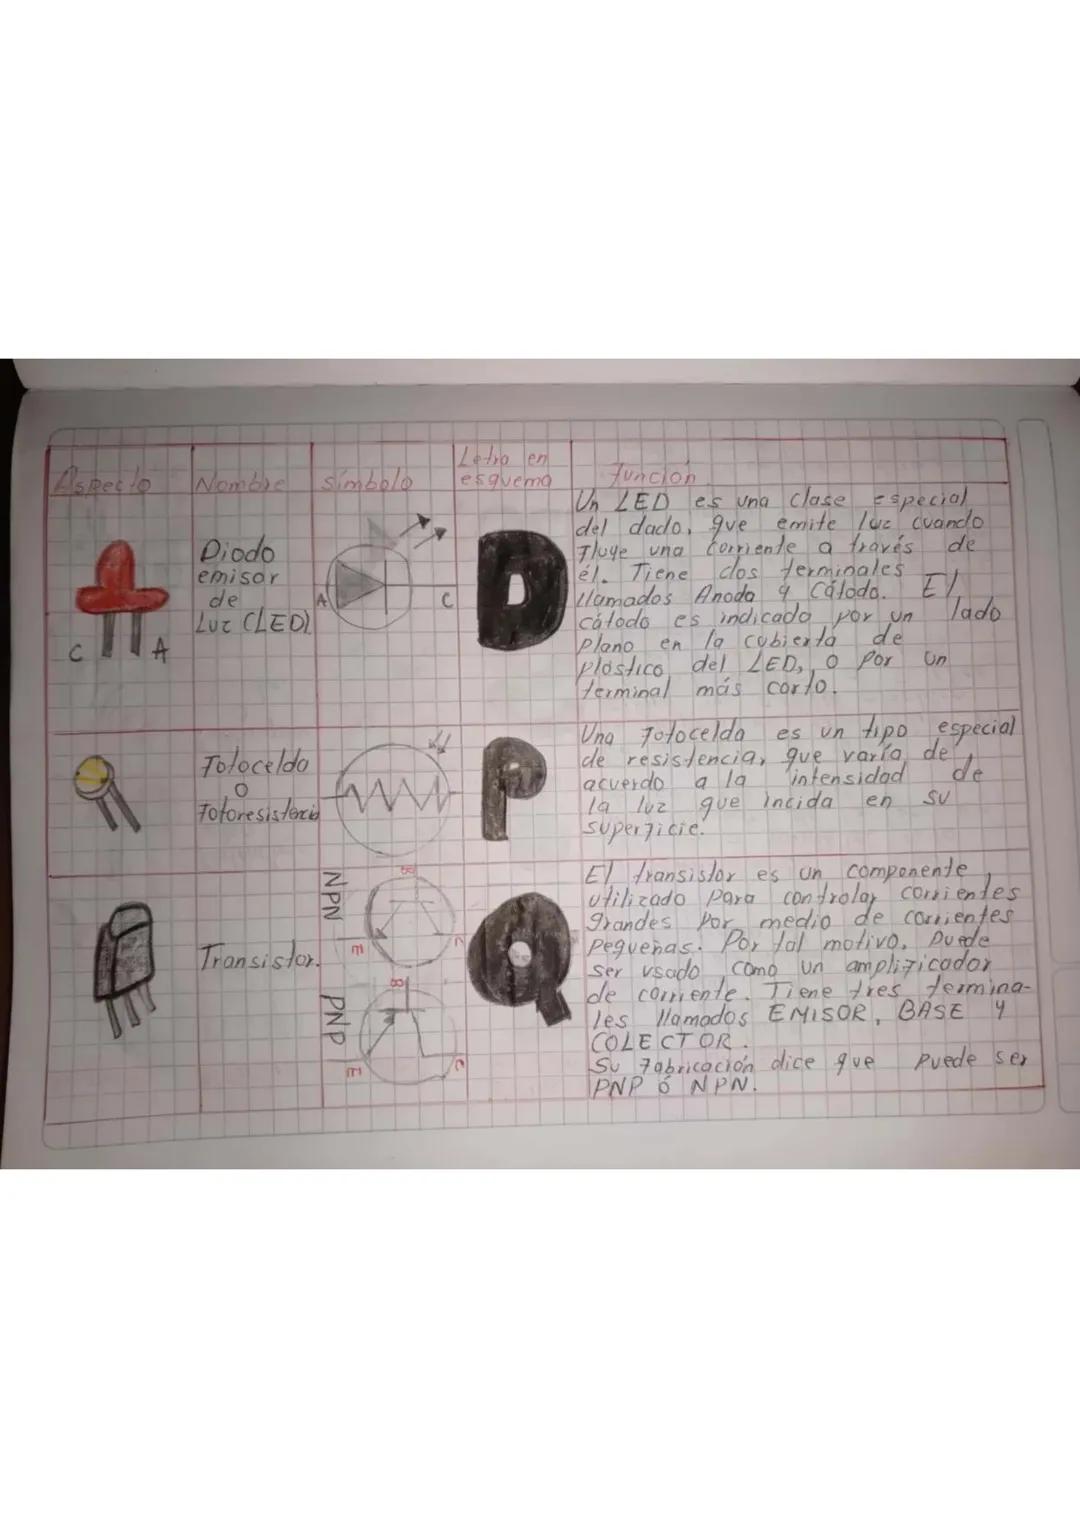 Aspecto
Nombre
símbolo
Letra en
esquema
Función
Diodo
emisor
de
Luz (LED)
C
A
A
C
D
Un LED es una clase especial
del dado, que emite luz cuando
Fluye una corriente a través de
él. Tiene dos terminales
llamados Anoda y Cátodo. El
cátodo es indicado por un lado
plano en la cubierta de
plástico del LED, o por un
terminal más corto.
Fotocelda
o
Fotoresistencia
P
Una Fotocelda es un tipo especial
de resistencia, que varía de
acuerdo a la intensidad de
la luz que incida en su
superficie.
Transistor.
NPN
B
E
C
PNP
B
E
C
Q
El transistor es un componente
utilizado para controlar corrientes
grandes por medio de corrientes
pequeñas. Por tal motivo, puede
ser usado como un amplificador
de corriente. Tiene tres termina-
les llamados EMISOR, BASE Y
COLECTOR.
Su fabricación dice que puede ser
PNP ó NPN.